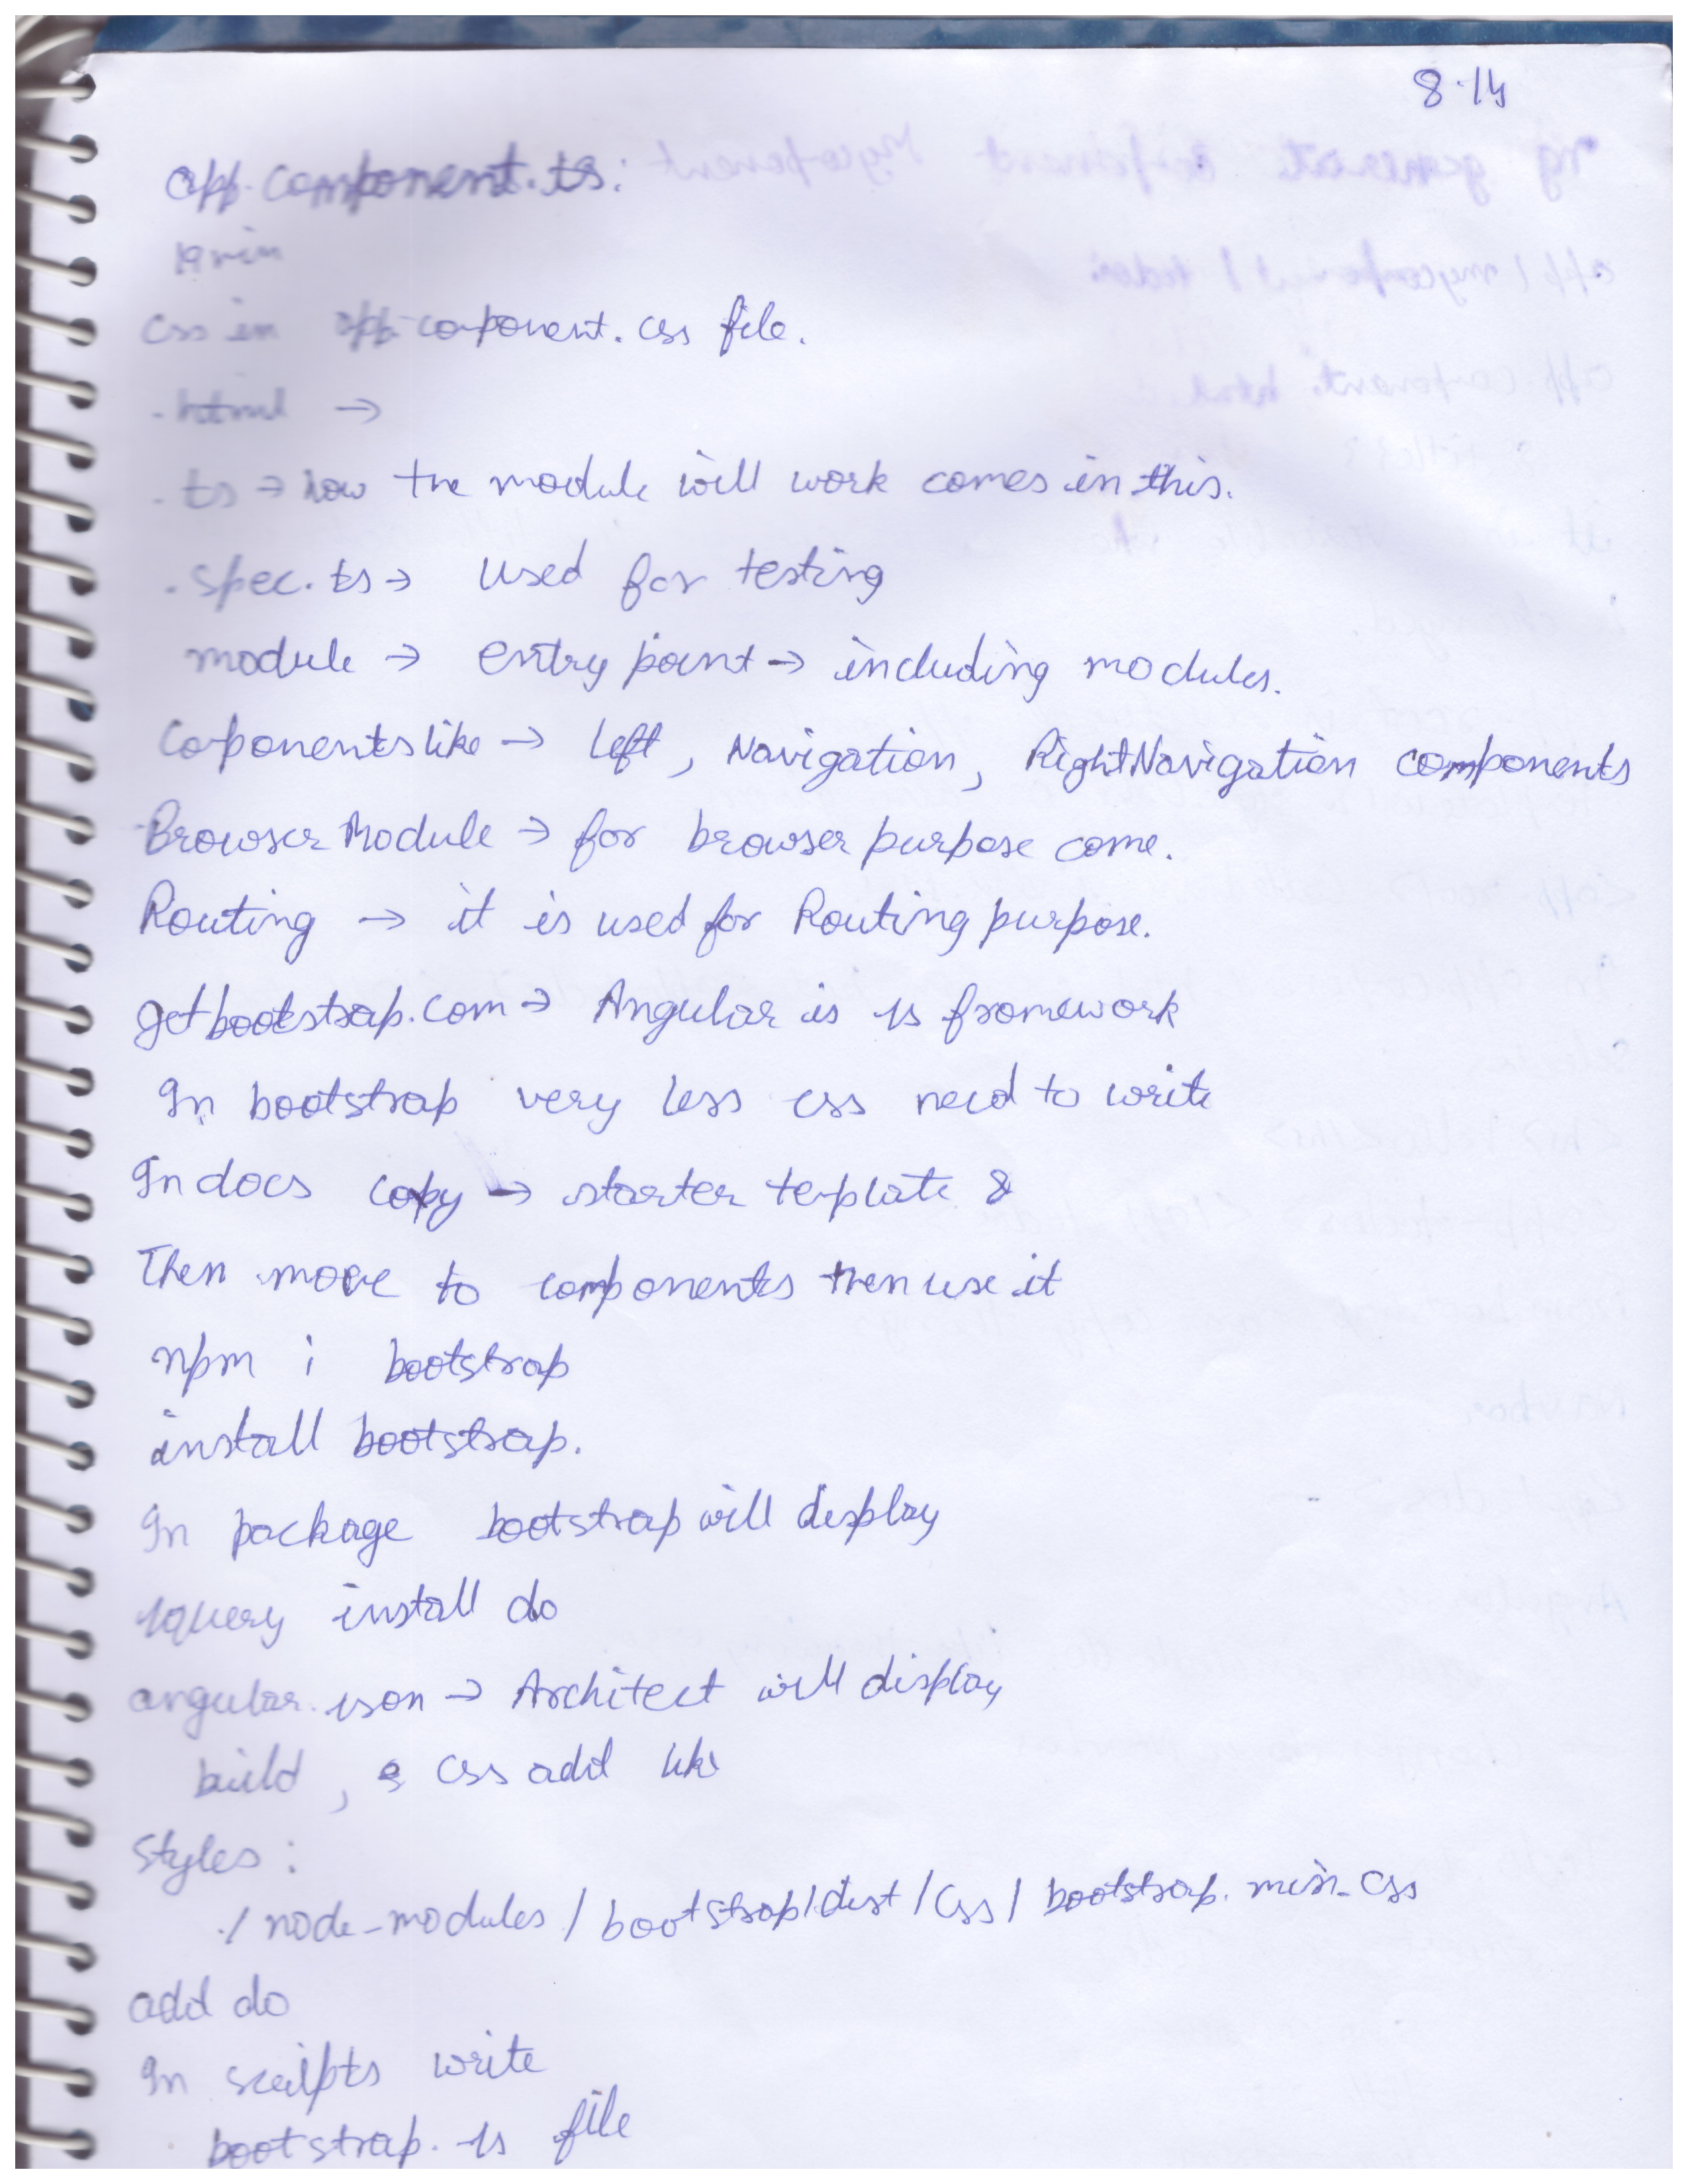 8.14
app.component.ts:
19 min
css in app.component.css file.
.html →
.ts → how the module will work comes in this.
.spec.ts → used for testing
module → entry point → including modules.
Coponents like → left, Navigation, RightNavigation components
Browser Module → for browser purpose come.
Routing → it is used for Routing purpose.
getbootstrap.com → Angular is Js framework
In bootstrap very less css need to write
In docs copy → starter teplate &
Then move to components then use it
npm i bootstrap
install bootstrap.
In package bootstrap will display
Jquery install do
angular.json → Architect will display
build, css add like
Styles:
./node_modules/bootstrap/dist/css/bootstrap.min.css
add do
In scripts write
bootstrap.js file